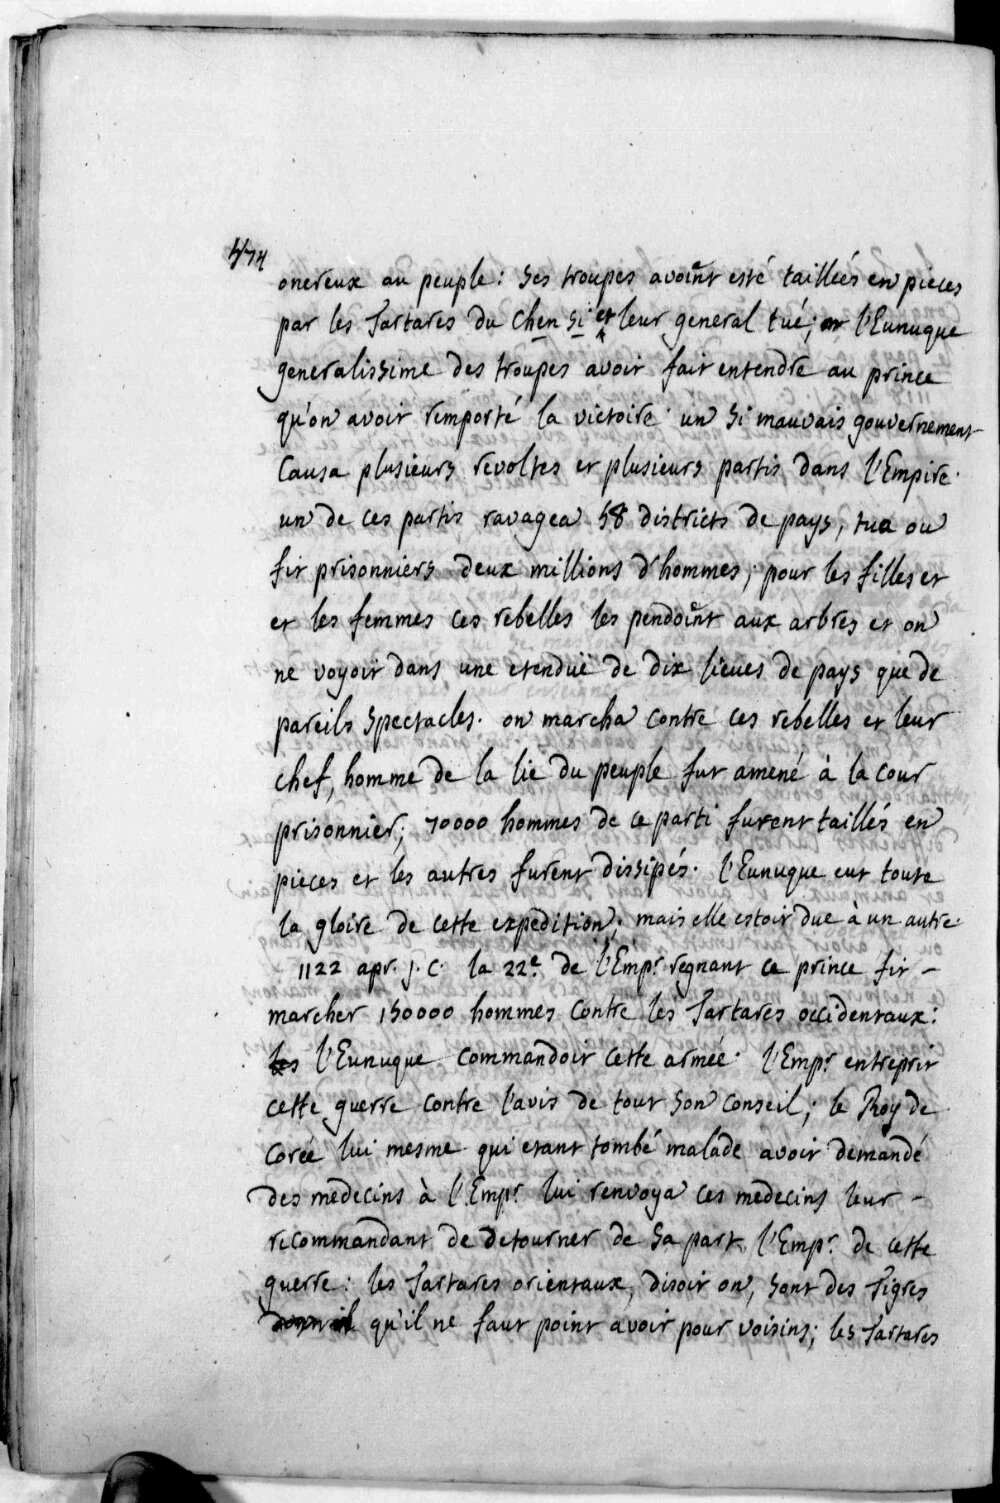 474
onereux au peuple: ses troupes avoint esté taillées en pieces
par les Tartares du Chen si et leur general tué; et l'Eunuque
generalissime des troupes avoit fait entendre au prince
qu'on avoit remporté la victoire. un si mauvais gouvernement
causa plusieurs revoltes et plusieurs partis dans l'Empire.
un de ces partis ravagea 58 districts de pays, tua ou
fit prisonniers deux millions d'hommes; pour les filles et
et les femmes ces rebelles les pendoint aux arbres et on
ne voyoit dans une etenduë de dix lieues de pays que de
pareils spectacles. on marcha contre ces rebelles et leur
chef, homme de la lie du peuple fut amené à la cour
prisonnier; 70000 hommes de ce parti furent taillés en
pieces et les autres furent dissipés. l'Eunuque eut toute
la gloire de cette expedition; mais elle estoit due à un autre.
1122 apr. J. C. la 22e. de l'Empr. regnant ce prince fit -
marcher 150000 hommes contre les Tartares occidentaux:
l'Eunuque commandoit cette armée. l'Empr. entreprit
cette guerre contre l'avis de tout son conseil; le Roy de
Corée lui mesme qui etant tombé malade avoit demandé
des medecins à l'Empr. lui renvoya ces medecins leur -
recommandant de detourner de sa part l'Empr. de cette
guerre: les Tartares orientaux, disoit on, sont des Tigres
qu'il ne faut point avoir pour voisins; les Tartares